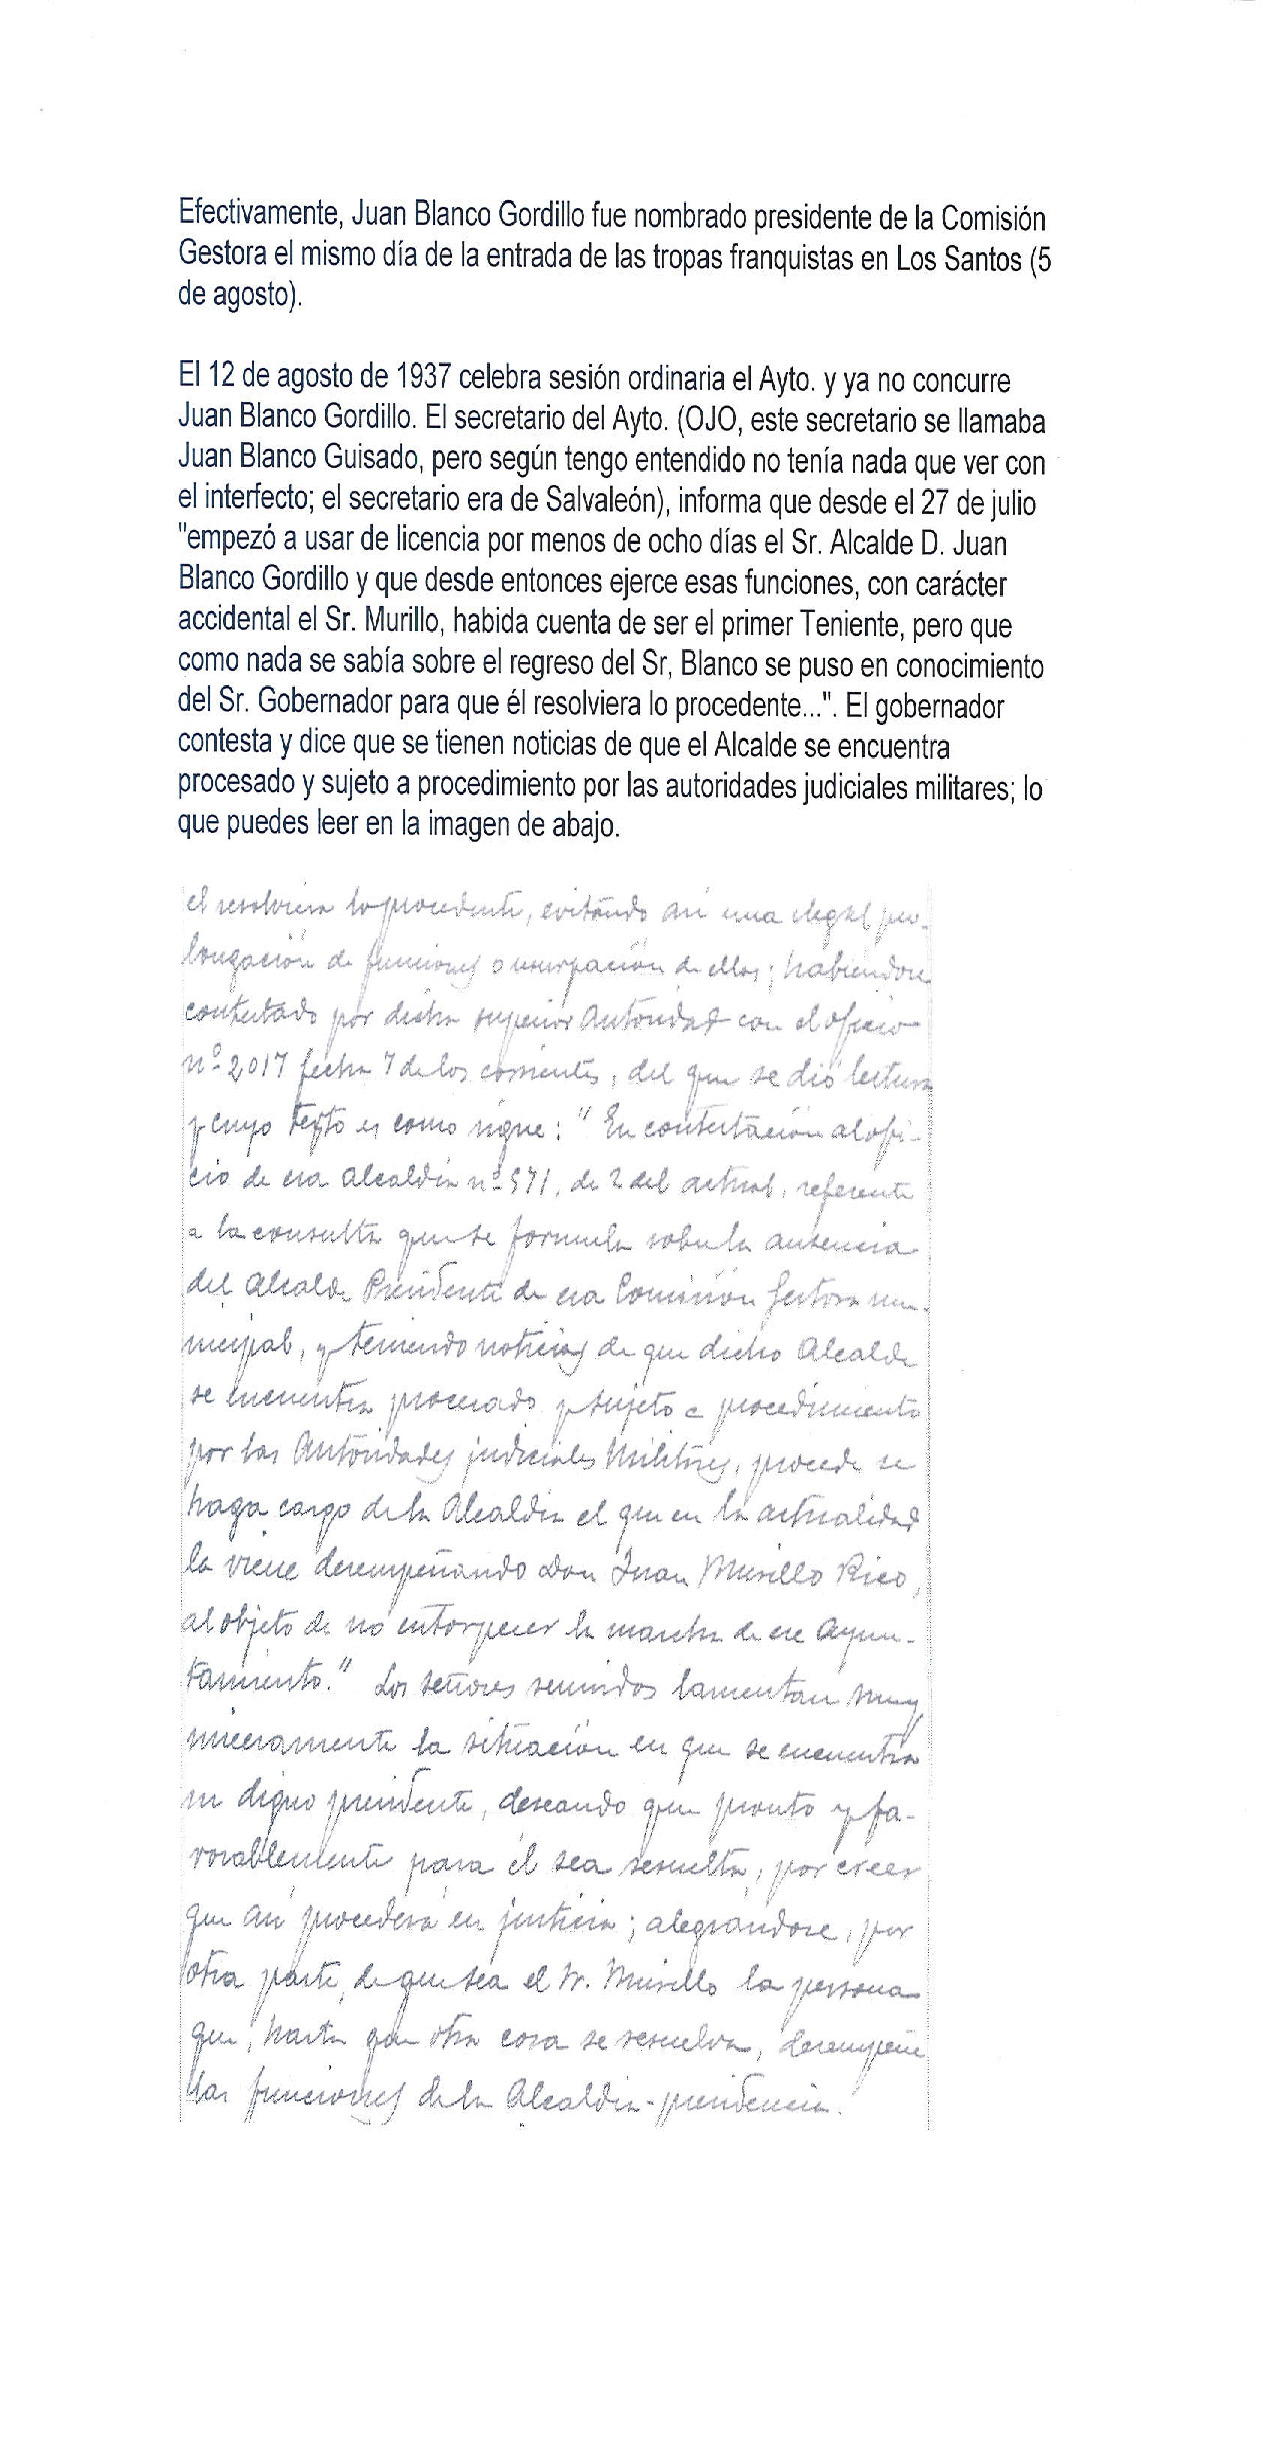 Efectivamente, Juan Blanco Gordillo fue nombrado presidente de la Comisión
Gestora el mismo día de la entrada de las tropas franquistas en Los Santos (5
de agosto).
El 12 de agosto de 1937 celebra sesión ordinaria el Ayto. y ya no concurre
Juan Blanco Gordillo. El secretario del Ayto. (OJO, este secretario se llamaba
Juan Blanco Guisado, pero según tengo entendido no tenía nada que ver con
el interfecto; el secretario era de Salvaleón), informa que desde el 27 de julio
"empezó a usar de licencia por menos de ocho días el Sr. Alcalde D. Juan
Blanco Gordillo y que desde entonces ejerce esas funciones, con carácter
accidental el Sr. Murillo, habida cuenta de ser el primer Teniente, pero que
como nada se sabía sobre el regreso del Sr, Blanco se puso en conocimiento
del Sr. Gobernador para que él resolviera lo procedente...". El gobernador
contesta y dice que se tienen noticias de que el Alcalde se encuentra
procesado y sujeto a procedimiento por las autoridades judiciales militares; lo
que puedes leer en la imagen de abajo.
el resolviera lo procedente, evitando así una ilegal pro-
longación de funciones o usurpación de ellas; habiendose
contestado por dicha superior Autoridad con el oficio
nº 2,017 fecha 7 de los corrientes, del que se dió lectura
y cuyo texto es como sigue: "En contestación al ofi-
cio de esa Alcaldía nº 571, de 2 del actual, referente
a la consulta que se formula sobre la ausencia
del Alcalde Presidente de esa Comisión Gestora mu-
nicipal, y teniendo noticias de que dicho Alcalde
se encuentra procesado y sujeto a procedimiento
por las Autoridades judiciales Militares, procede se
haga cargo de la Alcaldía el que en la actualidad
la viene desempeñando Don Juan Murillo Rico,
al objeto de no entorpecer la marcha de ese Ayun-
tamiento." Los señores reunidos lamentan muy
sinceramente la situación en que se encuentra
su digno presidente, deseando que pronto y fa-
vorablemente para él sea resuelta, por creer
que así procederá en justicia; alegrandose, por
otra parte, de que sea el Sr. Murillo la persona
que, hasta que otra cosa se resuelva, desempeñe
las funciones de la Alcaldía-presidencia.